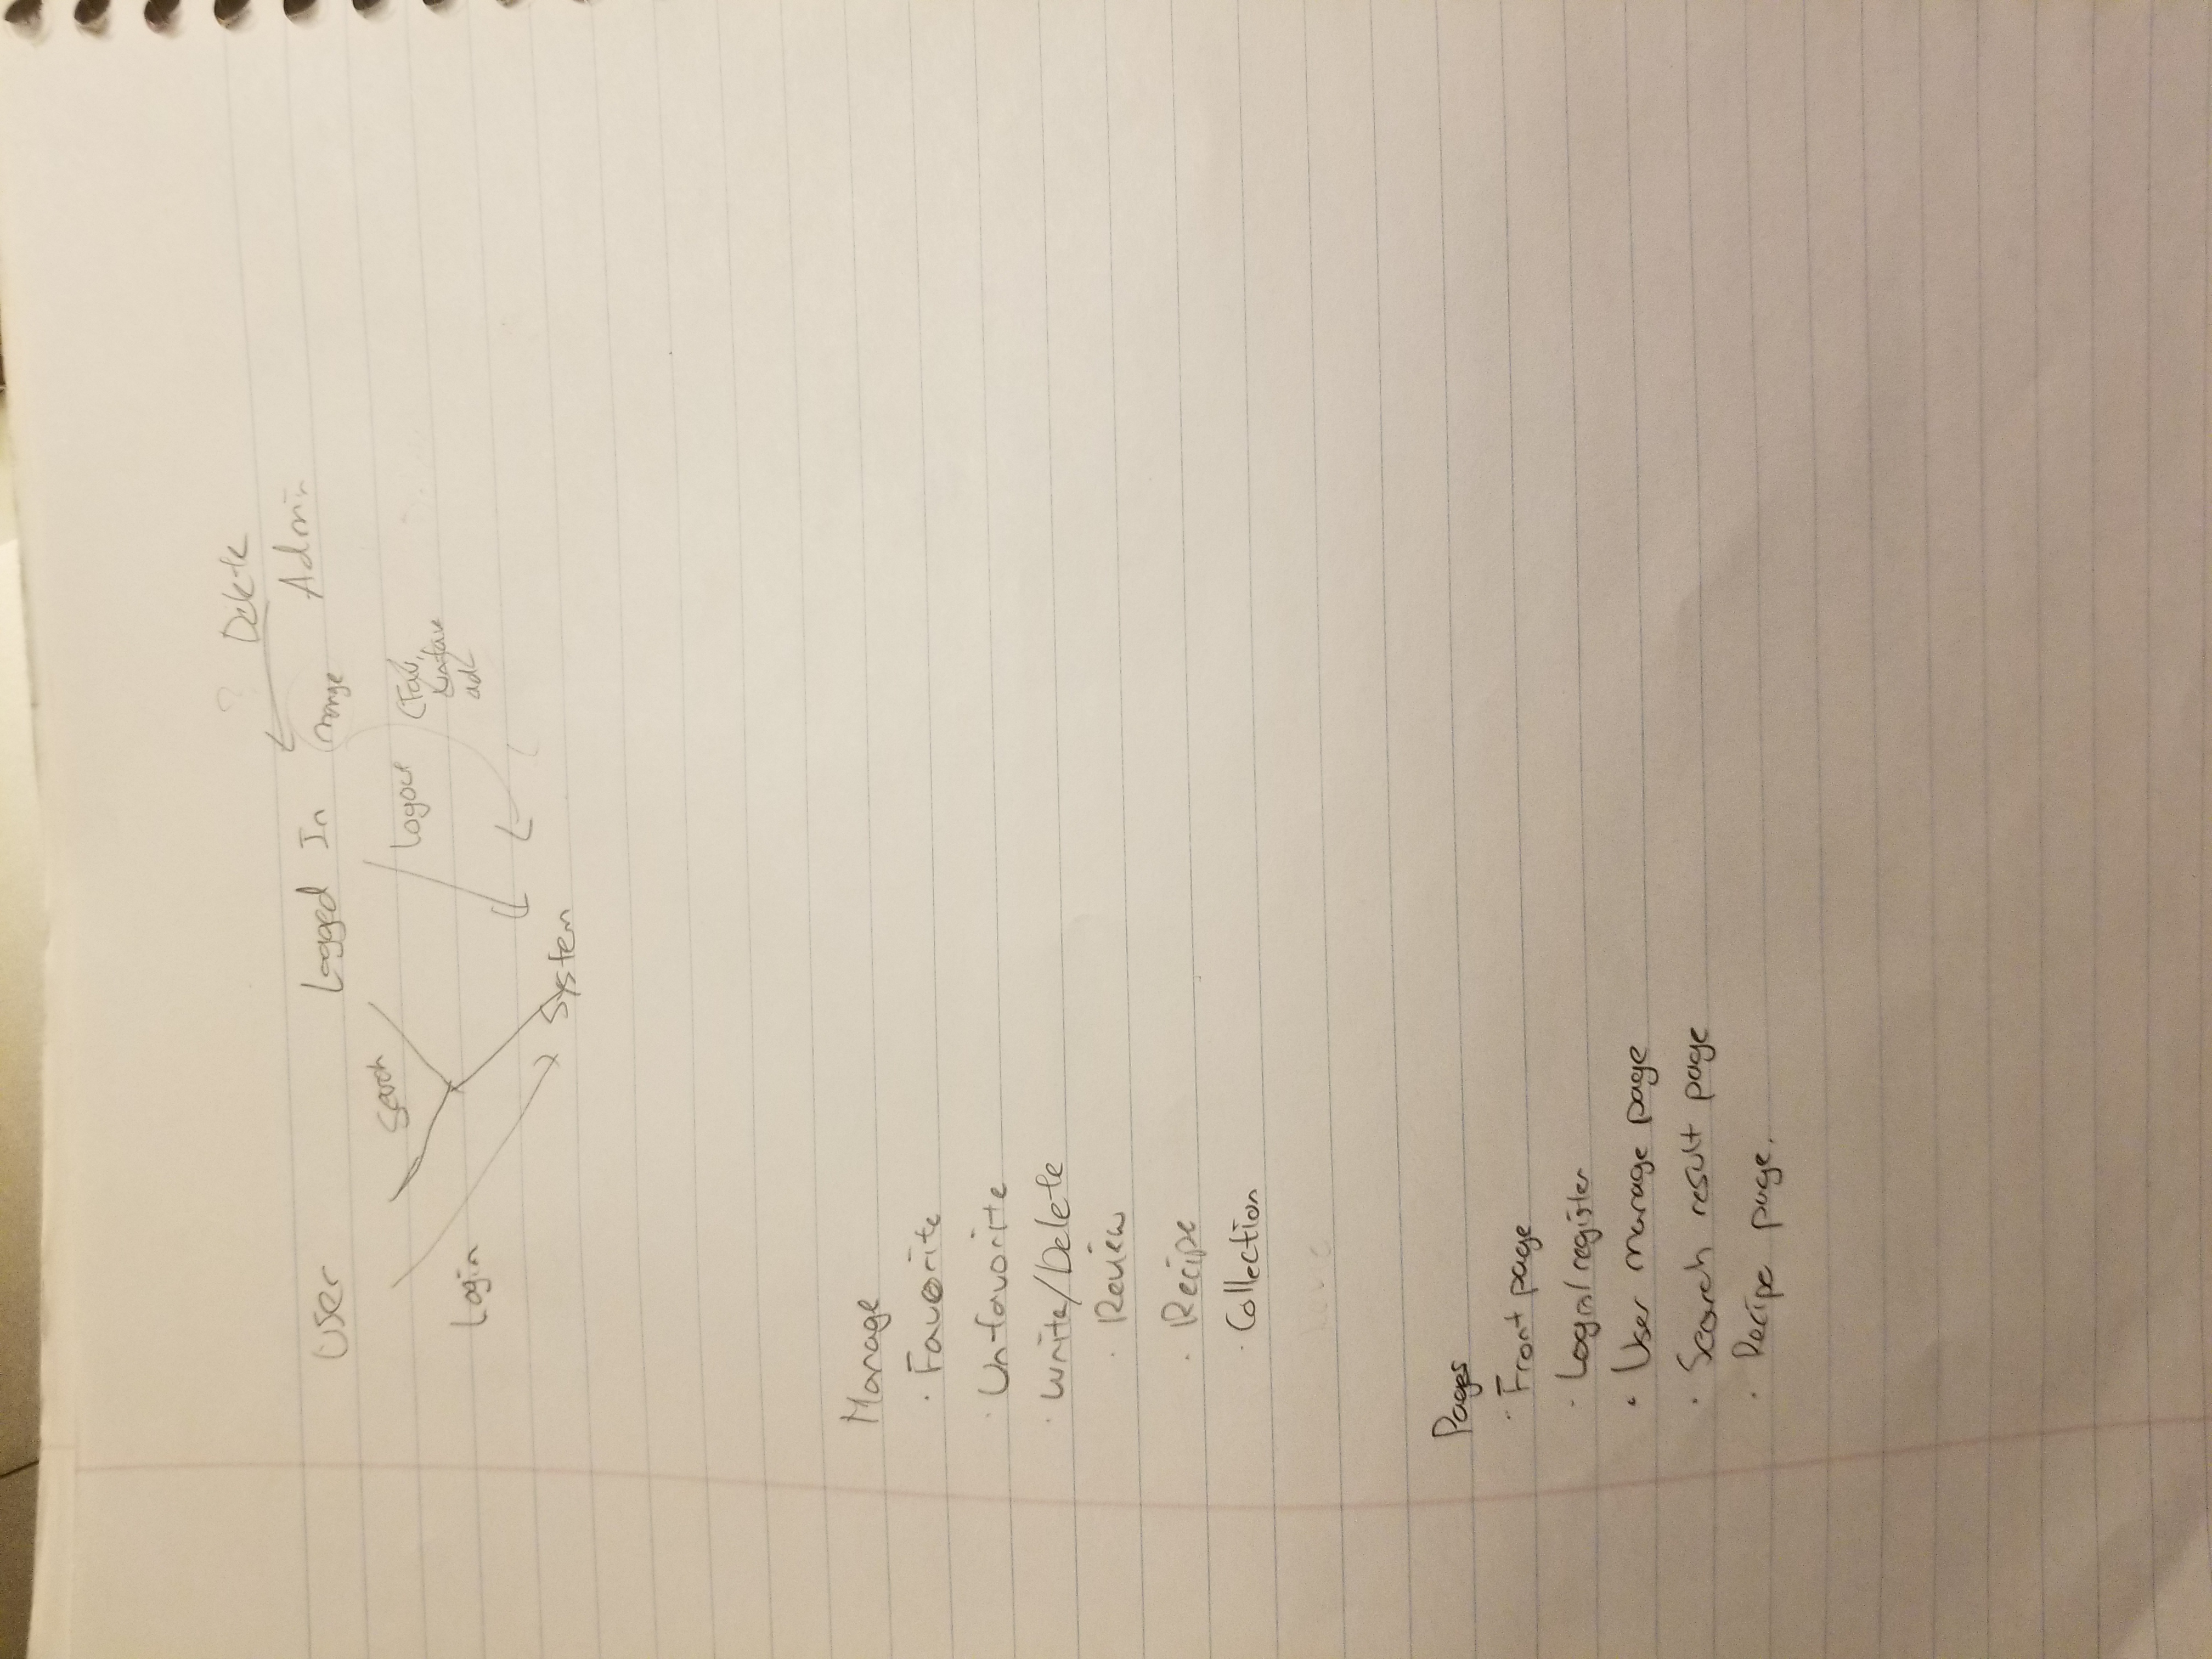 ? Delete
User Logged In Manage Admin
Search
Logout (Fav,
Unfav
Login
ad
System
Manage
· Favorite
· Unfavorite
· Write/Delete
· Review
· Recipe
· Collection
Pages
· Front page
· Login/register
· User manage page
· Search result page
· Recipe page.